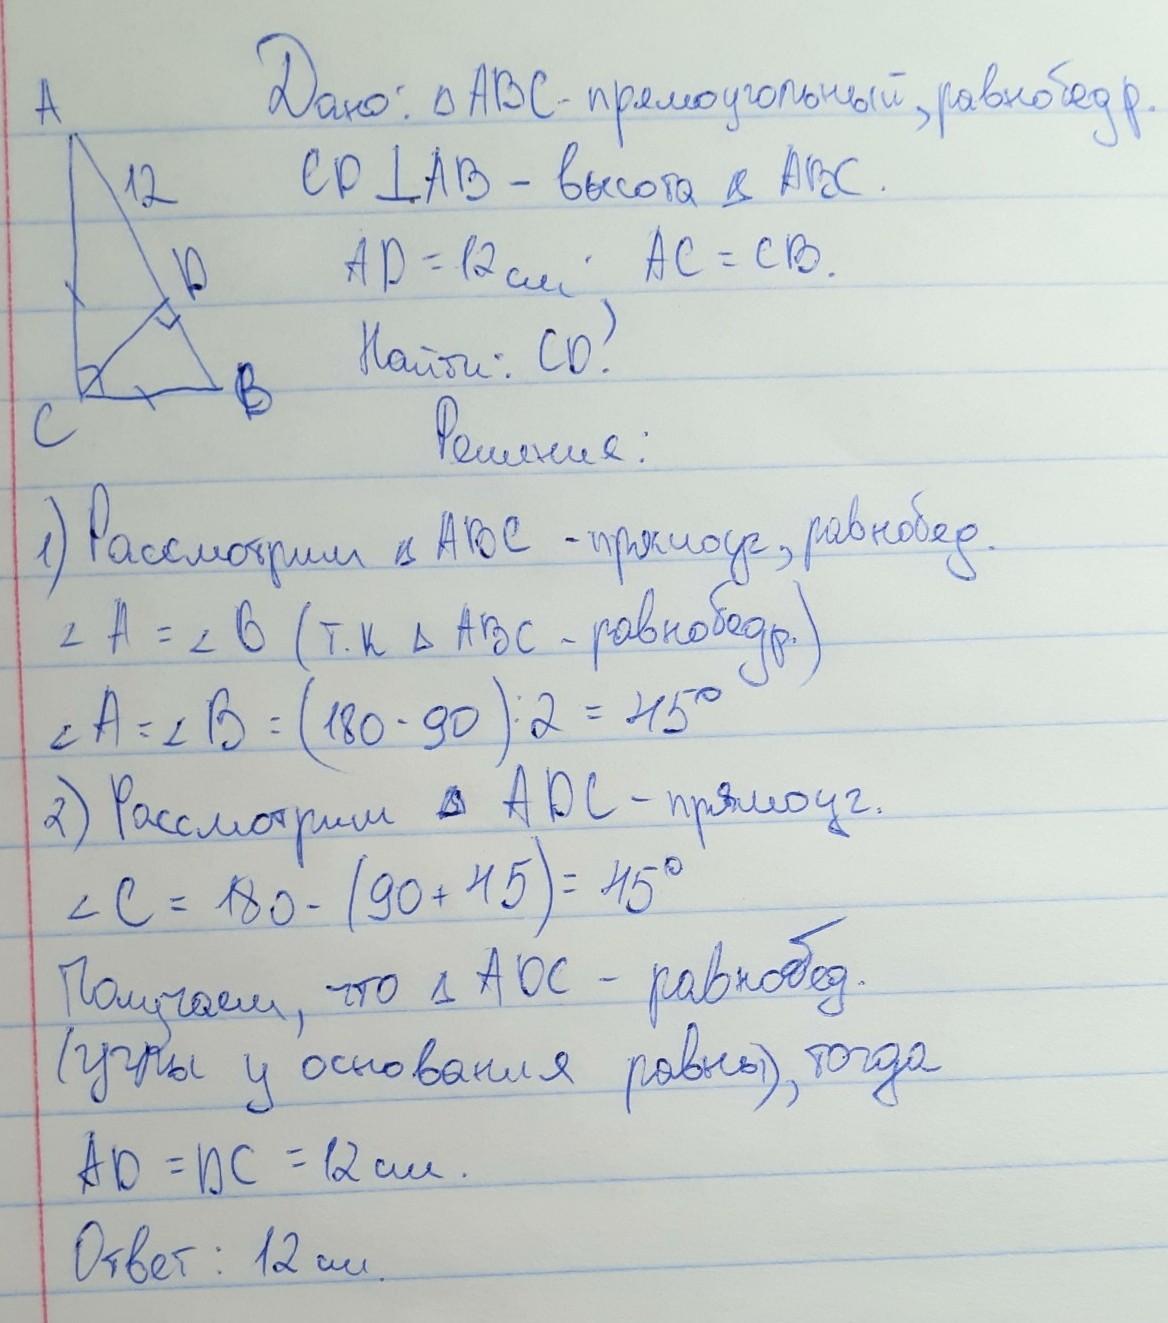 Дано: △ABC - прямоугольный, равнобедр.
A
12
CD⊥AB - высота △ ABC.
D
AD = 12 см; AC = CB.
Найти: CD?
B
C
Решения:
1) Рассмотрим △ ABC - прямоуг, равнобед.
∠A = ∠B (т.к △ ABC - равнобедр.)
∠A = ∠B = (180 - 90):2 = 45°
2) Рассмотрим △ ADC - прямоуг.
∠C = 180 - (90 + 45) = 45°
Получаем, что △ ADC - равнобед.
(углы у основания равны), тогда
AD = DC = 12 см.
Ответ: 12 см.